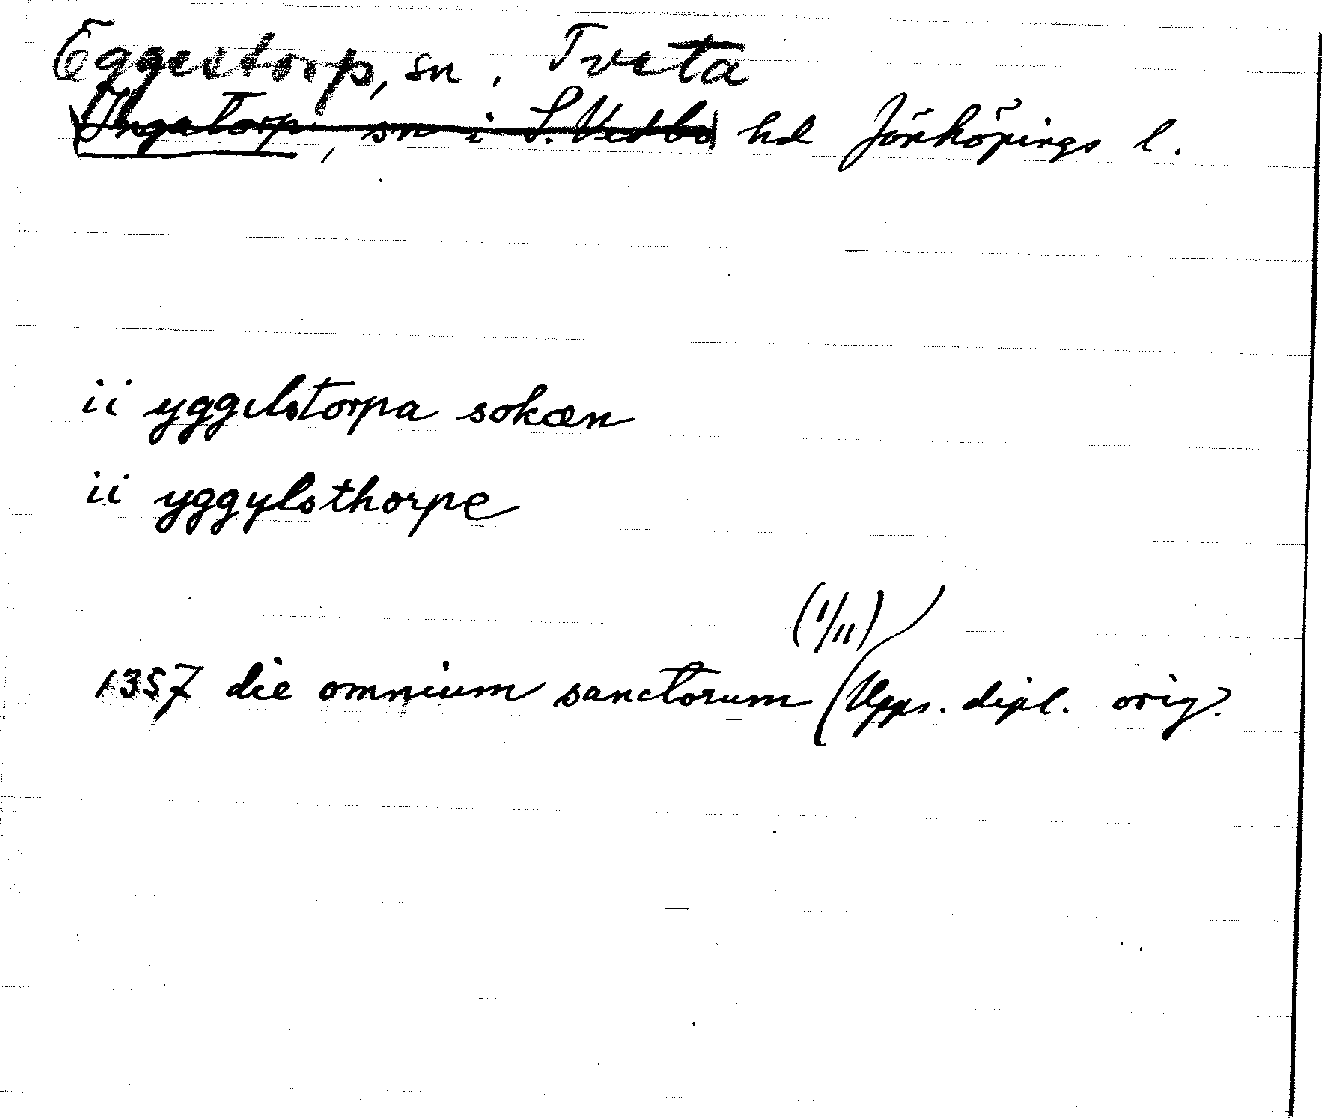 Eggestorp, sn, Tveta
Ingatorp, sn i S. Vedbo hd Jönköpings l.
ii yggelstorpa sokæn
ii yggylsthorpe
(1/11)
1357 die omnium sanctorum Upps. dipl. orig.